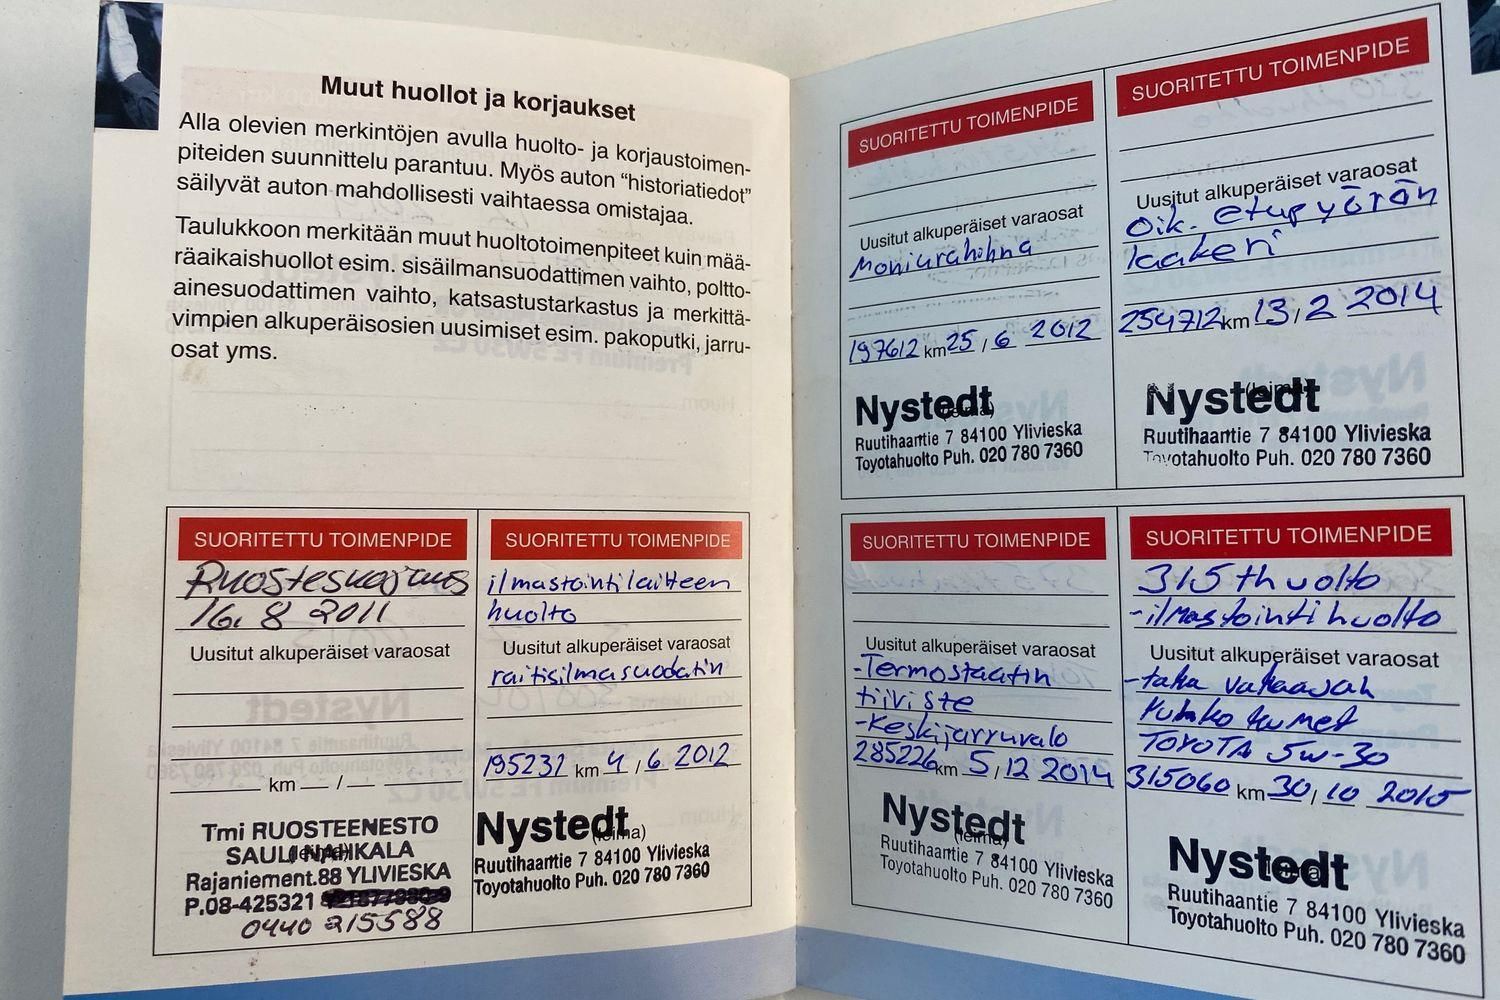 Muut huollot ja korjaukset
Alla olevien merkintöjen avulla huolto- ja korjaustoimen-
piteiden suunnittelu parantuu. Myös auton “historiatiedot”
säilyvät auton mahdollisesti vaihtaessa omistajaa.
Taulukkoon merkitään muut huoltotoimenpiteet kuin mää-
räaikaishuollot esim. sisäilmansuodattimen vaihto, poltto-
ainesuodattimen vaihto, katsastustarkastus ja merkittä-
vimpien alkuperäisosien uusimiset esim. pakoputki, jarru-
osat yms.
SUORITETTU TOIMENPIDE
Ruostesuojaus
16.8 2011
Uusitut alkuperäiset varaosat
km / -
Tmi RUOSTEENESTO
SAULI
Rajaniement.88 YLIVIESKA
P.08-425321
0440 215588
SUORITETTU TOIMENPIDE
ilmastointilaitteen
huolto
Uusitut alkuperäiset varaosat
raitisilmasuodatin
195232 km 4 / 6 2012
Nystedt
(leima)
Ruutihaantie 7 84100 Ylivieska
Toyotahuolto Puh. 020 780 7360
SUORITETTU TOIMENPIDE
Uusitut alkuperäiset varaosat
Moniurahihna
197612 km 25 / 6 2012
Nystedt
(leima)
Ruutihaantie 7 84100 Ylivieska
Toyotahuolto Puh. 020 780 7360
SUORITETTU TOIMENPIDE
Uusitut alkuperäiset varaosat
Oik. etupyörän
laakeri
254712 km 13 / 2 2014
Nystedt
(leima)
Ruutihaantie 7 84100 Ylivieska
Toyotahuolto Puh. 020 780 7360
SUORITETTU TOIMENPIDE
Uusitut alkuperäiset varaosat
-Termostaatin
tiiviste
-Keskijarruvalo
285226 km 5 / 12 2014
Nystedt
(leima)
Ruutihaantie 7 84100 Ylivieska
Toyotahuolto Puh. 020 780 7360
SUORITETTU TOIMENPIDE
315 th uolto
-ilmastointi huolto
Uusitut alkuperäiset varaosat
-taka
TOYOTA 5w-30
315060 km 30 / 10 2015
Nystedt
Ruutihaantie 7 84100 Ylivieska
Toyotahuolto Puh. 020 780 7360